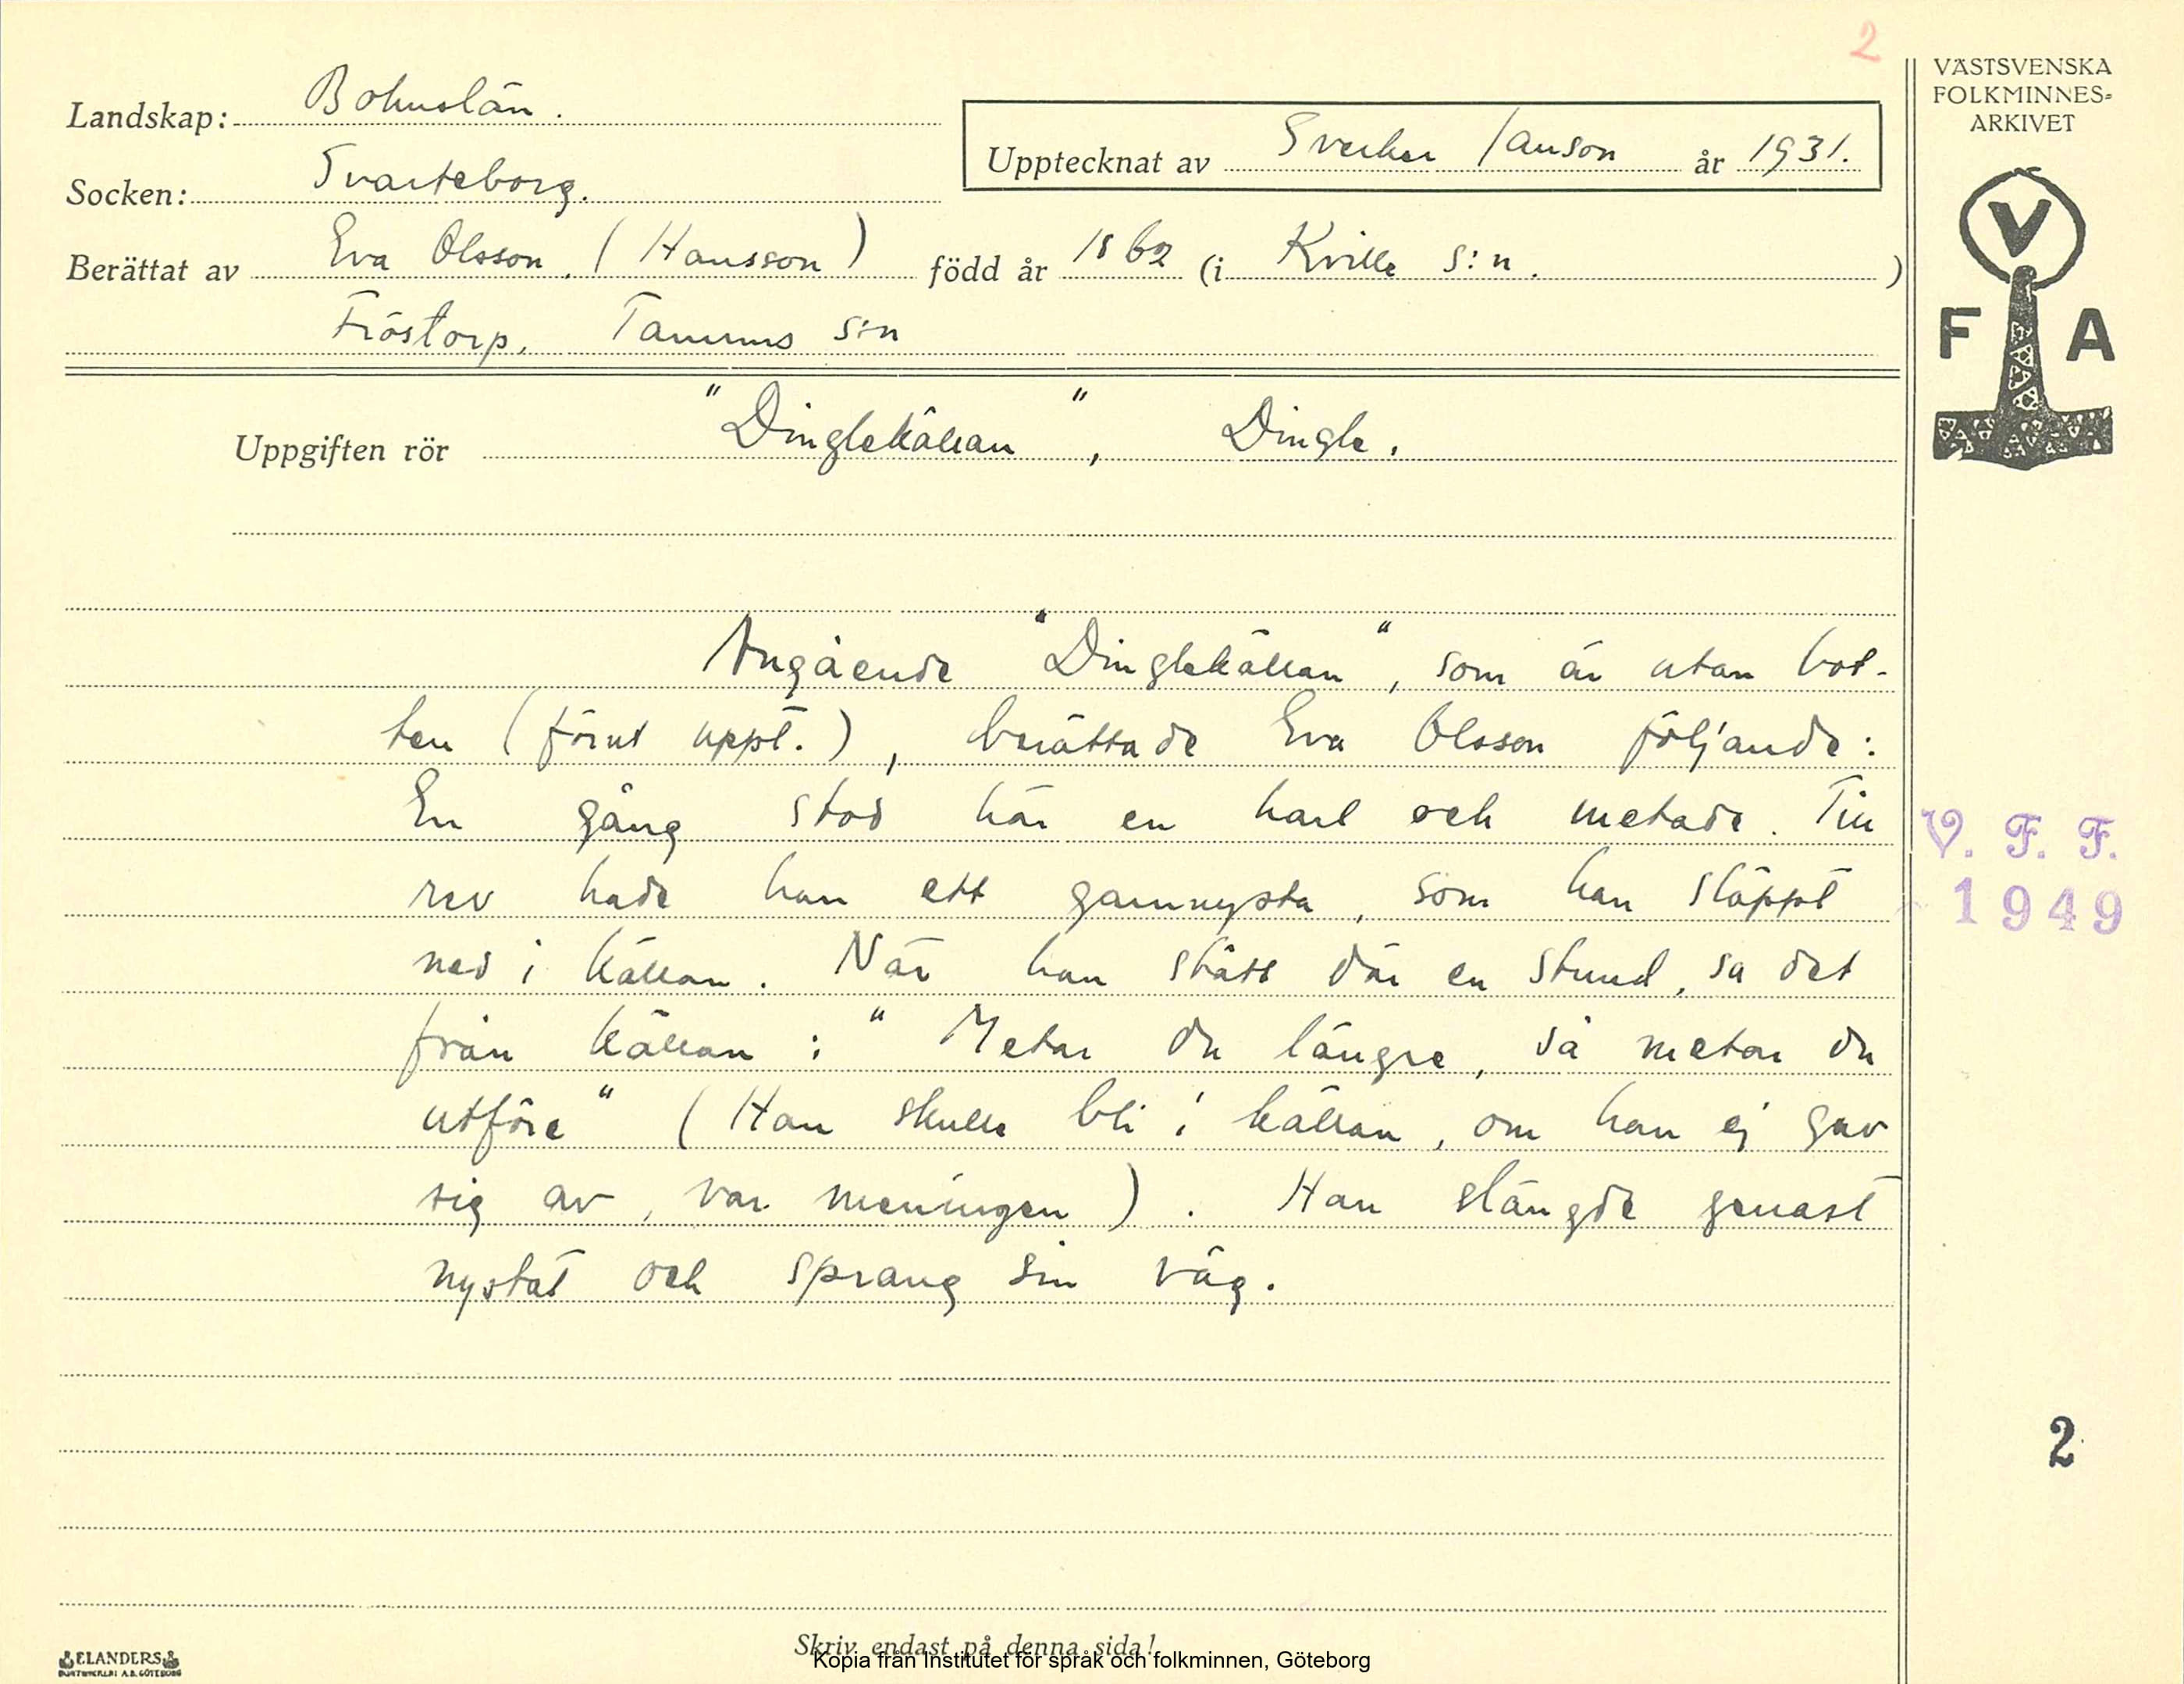 2
VÄSTSVENSKA
FOLKMINNES-
ARKIVET
V
F A
Landskap: Bohuslän.
Upptecknat av Sverker Janson år 1931.
Socken: Svarteborg.
Berättat av Eva Olsson. (Hansson) född år 1862 (i Kville s:n.)
Fröstorp, Tanums s:n
Uppgiften rör "Dinglekällan", Dingle.
Angående "Dinglekällan", som är utan bot-
ten (förut uppt.), berättade Eva Olsson följande:
En gång stod här en karl och metade. Till
rev hade han ett garnnysta, som han släppt
ned i källan. När han stått där en stund, sa det
från källan: "Metar du längre, så metar du
utföre" (Han skulle bli i källan, om han ej gav
sig av, var meningen). Han slängde genast
nystat och sprang sin väg.
V. F. F.
1949
2
Skriv endast på denna sida!
Kopia från Institutet för språk och folkminnen, Göteborg
ELANDERS
BOKTRYCKERI A.B. GÖTEBORG